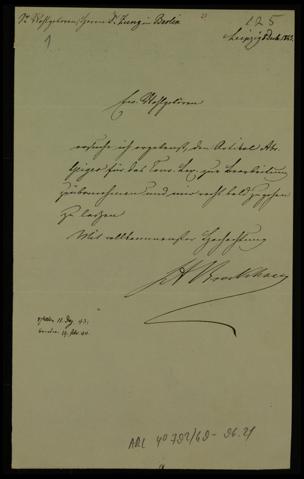 Sr Wohlgeboren, Herrn Dr. Zunz in Berlin
125
Leipzig 8 Dec. 1843.
1
Ew. Wohlgeboren
ersuche ich ergebenst, den Artikel Abr.
Geiger für das Conv. Lex. zur Bearbeitung
zu übernehmen und mir recht bald zugehen
zu lassen
Mit vollkommenster Hochachtung
FA Brockhaus
erhalten 11. Dez. 43.
ARC 4° 792/G8-26.21